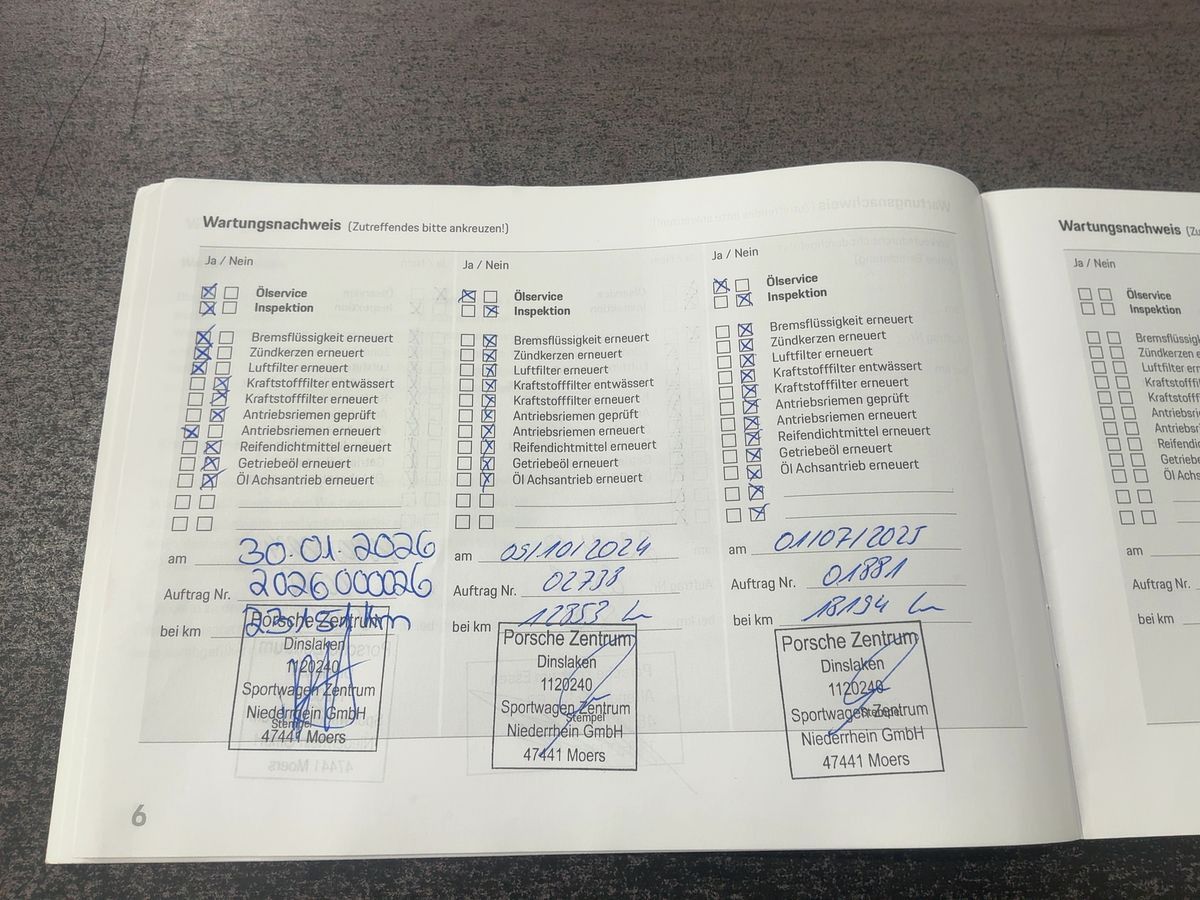 Wartungsnachweis (Zutreffendes bitte ankreuzen!)
Ja / Nein
Ölservice
Inspektion
Bremsflüssigkeit erneuert
Zündkerzen erneuert
Luftfilter erneuert
Kraftstofffilter entwässert
Kraftstofffilter erneuert
Antriebsriemen geprüft
Antriebsriemen erneuert
Reifendichtmittel erneuert
Getriebeöl erneuert
Öl Achsantrieb erneuert
am 30.01.2026
Auftrag Nr. 2026000026
bei km
Porsche Zentrum
Dinslaken
1120240
Sportwagen Zentrum
Niederrhein GmbH
Stempel
47441 Moers
Ja / Nein
Ölservice
Inspektion
Bremsflüssigkeit erneuert
Zündkerzen erneuert
Luftfilter erneuert
Kraftstofffilter entwässert
Kraftstofffilter erneuert
Antriebsriemen geprüft
Antriebsriemen erneuert
Reifendichtmittel erneuert
Getriebeöl erneuert
Öl Achsantrieb erneuert
am 09/10/2024
Auftrag Nr. 02738
bei km 12853 km
Porsche Zentrum
Dinslaken
1120240
Sportwagen Zentrum
Stempel
Niederrhein GmbH
47441 Moers
Ja / Nein
Ölservice
Inspektion
Bremsflüssigkeit erneuert
Zündkerzen erneuert
Luftfilter erneuert
Kraftstofffilter entwässert
Kraftstofffilter erneuert
Antriebsriemen geprüft
Antriebsriemen erneuert
Reifendichtmittel erneuert
Getriebeöl erneuert
Öl Achsantrieb erneuert
am 01/07/2025
Auftrag Nr. 01881
bei km 18194 km
Porsche Zentrum
Dinslaken
1120240
Sportwagen Zentrum
Stempel
Niederrhein GmbH
47441 Moers
6
Wartungsnachweis (Zu
Ja / Nein
Ölservice
Inspektion
Bremsflüssig
Zündkerzen e
Luftfilter erne
Kraftstofffilter
Kraftstofffilt
Antriebsrie
Antriebsr
Reifendi
Getriebe
Öl Achs
am
Auftrag Nr.
bei km